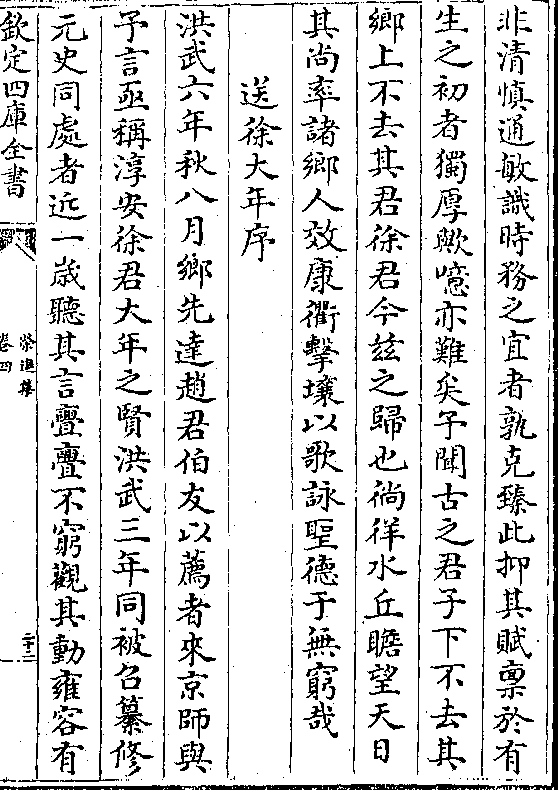 非清慎通敏識時務之宜者孰克臻此抑其賦禀於有
生之初者獨厚歟噫亦難矣予聞古之君子下不去其
鄉上不去其君徐君今兹之歸也徜徉水丘瞻望天日
其尚率諸鄉人效康衢擊壤以歌詠聖德于無窮哉
送徐大年序
洪武六年秋八月鄉先達趙君伯友以薦者來京師與
予言亟稱淳安徐君大年之賢洪武三年同被召纂修
元史同處者近一歲聽其言亹亹不窮觀其動雍容有
欽定四庫全書
榮進集
卷四
二十二